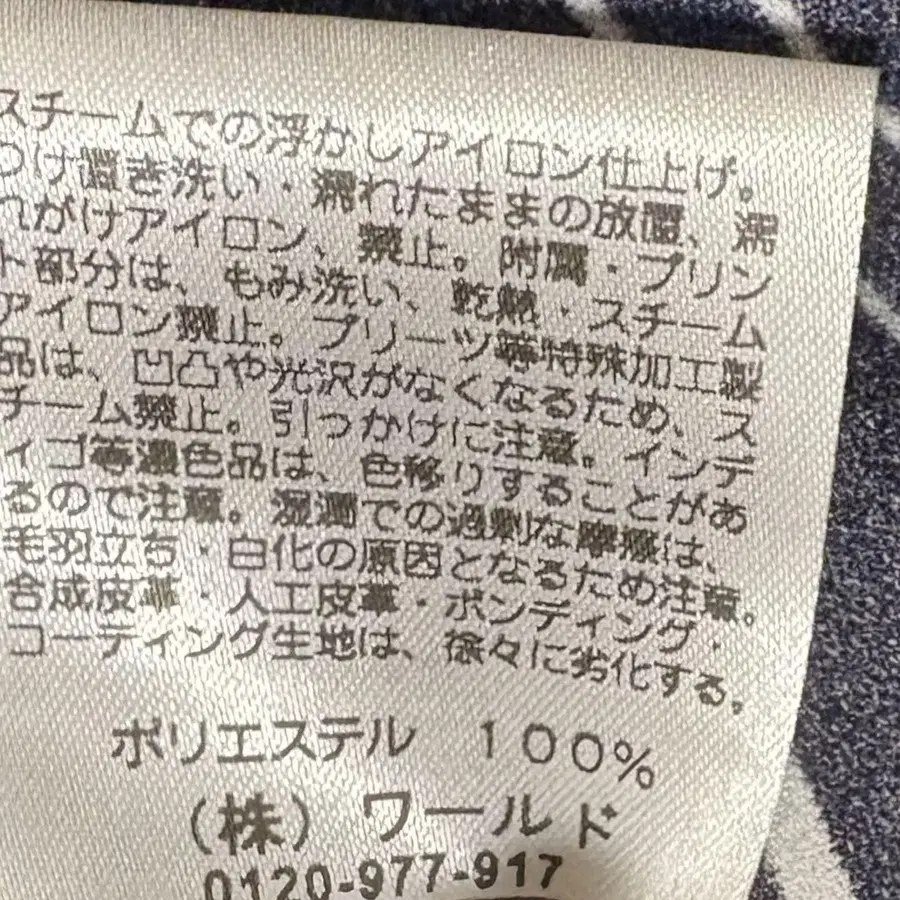 スチームでの浮かしアイロン仕上げ。
つけ置き洗い・濡れたままの放置、濡
れがけアイロン、禁止。附属・プリン
ト部分は、もみ洗い、乾熱・スチーム
アイロン禁止。プリーツ等特殊加工製
品は、凹凸や光沢がなくなるため、ス
チーム禁止。引っかけに注意。インデ
ィゴ等濃色品は、色移りすることがあ
るので注意。湿潤での過剰な摩擦は、
毛羽立ち・白化の原因となるため注意。
合成皮革・人工皮革・ボンディング・
コーティング生地は、徐々に劣化する。
ポリエステル 100%
(株) ワールド
0120-977-917